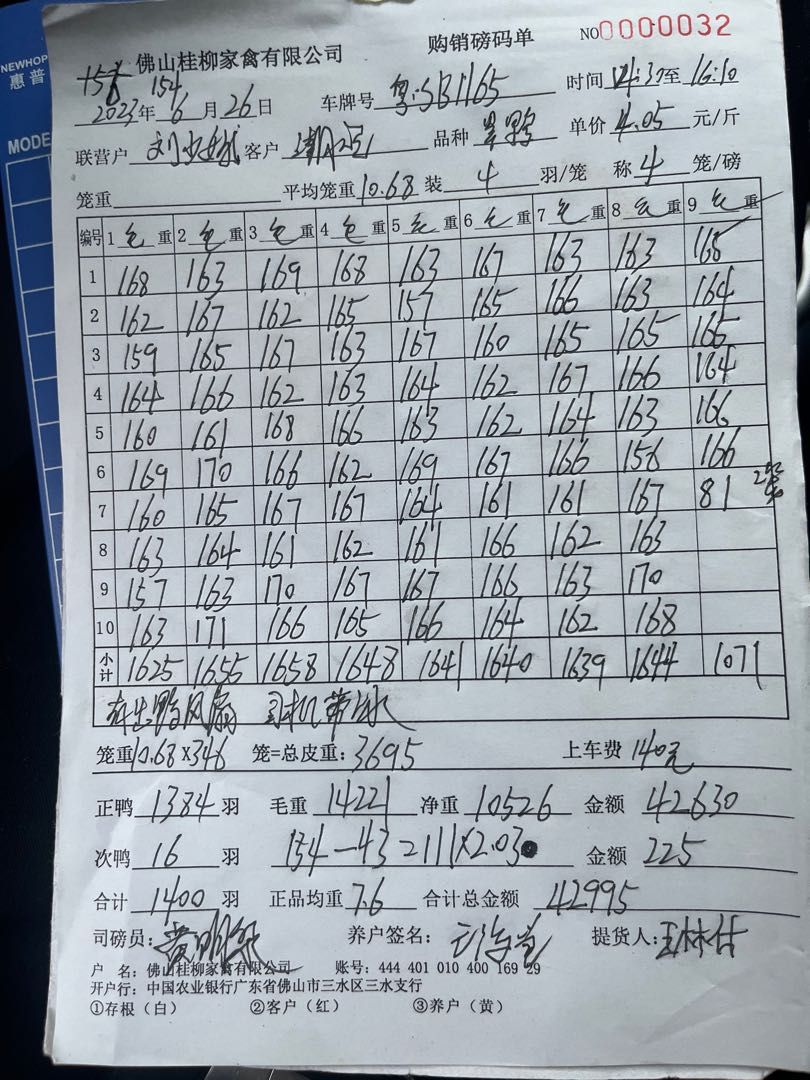 NEWHOP
惠普
MODE
佛山桂柳家禽有限公司 购销磅码单 NO0000032
154
2023年6月26日 车牌号 粤SB1165 时间 14:30至16:10
联营户 客户 品种 单价4.05元/斤
笼重 平均笼重10.68装 4 羽/笼 称4笼/磅
编号 1 毛重 2 毛重 3 毛重 4 毛重 5 毛重 6 毛重 7 毛重 8 毛重 9 毛重
1 168 163 169 168 163 167 163 163 165
2 162 167 162 165 157 165 166 163 164
3 159 165 167 163 167 160 165 165 165
4 164 166 162 163 164 162 167 166 164
5 160 161 168 166 163 162 164 163 166
6 169 170 166 162 169 167 166 156 166
7 160 165 167 167 164 161 161 167 81 2笼
8 163 164 161 162 161 166 162 163
9 157 163 170 167 167 166 163 170
10 163 171 166 165 166 164 162 168
小计 1625 1655 1658 1648 1641 1640 1639 1644 1071
有出鸭风扇 司机带水
笼重10.68X346 笼=总皮重:3695 上车费140元
正鸭1384羽 毛重14221净重10526金额42630
次鸭16羽 154-43=111X2.03 金额225
合计1400羽 正品均重7.6 合计总金额42995
司磅员: 养户签名: 提货人:
户 名:佛山桂柳家禽有限公司 账号:444 401 010 400 169 29
开户行:中国农业银行广东省佛山市三水区三水支行
①存根(白) ②客户(红) ③养户(黄)